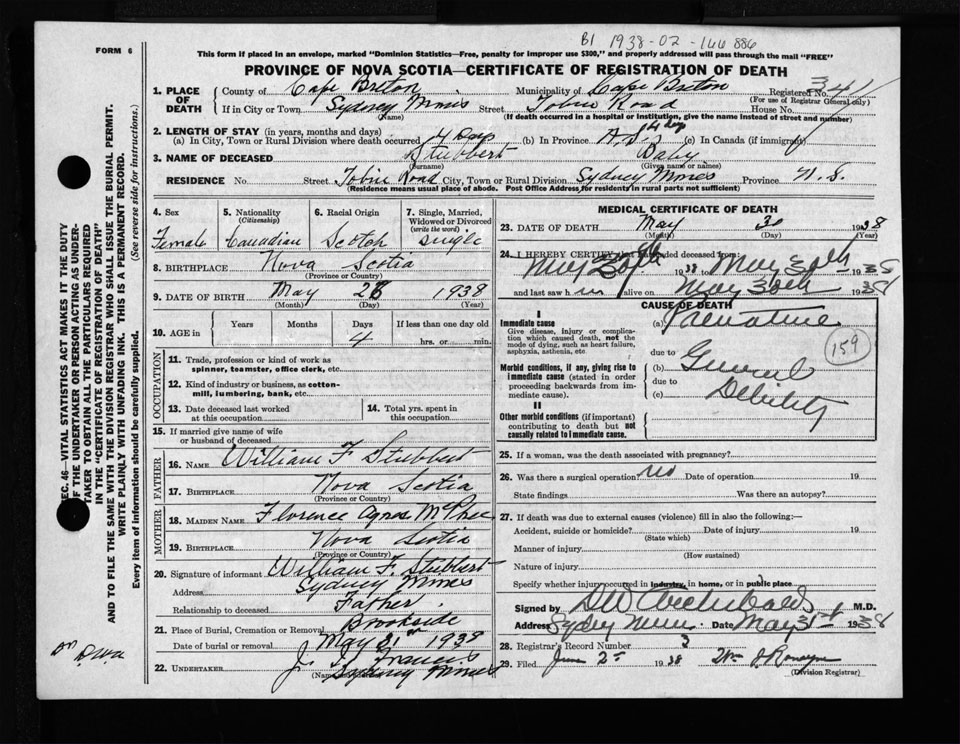 B1 1938-02-166 886
FORM 6
This form if placed in an envelope, marked "Dominion Statistics—Free, penalty for improper use $300," and properly addressed will pass through the mail "FREE"
PROVINCE OF NOVA SCOTIA—CERTIFICATE OF REGISTRATION OF DEATH
1. PLACE OF DEATH County of Cape Breton Municipality of Cape Breton Registered No.
(For use of Registrar General only)
If in City or Town Sydney Mines Street Tobin Road House No.
(Name) (If death occurred in a hospital or institution, give the name instead of street and number)
2. LENGTH OF STAY (in years, months and days)
(a) In City, Town or Rural Division where death occurred 4 Days (b) In Province 4 day (c) In Canada (if immigrant)
3. NAME OF DECEASED Stubbert Baby
(Surname) (Given name or names)
RESIDENCE No. Street Tobin Road City, Town or Rural Division Sydney Mines Province N.S.
(Residence means usual place of abode. Post Office Address for residents in rural parts not sufficient)
4. Sex 5. Nationality (Citizenship) 6. Racial Origin 7. Single, Married, Widowed or Divorced (write the word)
Female Canadian Scotch Single
8. BIRTHPLACE Nova Scotia
(Province or Country)
9. DATE OF BIRTH May 26 1938
(Month) (Day) (Year)
10. AGE in Years Months Days If less than one day old
4 hrs. or min.
OCCUPATION
11. Trade, profession or kind of work as spinner, teamster, office clerk, etc.
12. Kind of industry or business, as cotton-mill, lumbering, bank, etc.
13. Date deceased last worked at this occupation
14. Total yrs. spent in this occupation
15. If married give name of wife or husband of deceased
FATHER
16. NAME William F Stubbert
17. BIRTHPLACE Nova Scotia
(Province or Country)
MOTHER
18. MAIDEN NAME Florence Agnes McPhee
19. BIRTHPLACE Nova Scotia
(Province or Country)
20. Signature of informant William F Stubbert
Address Sydney Mines
Relationship to deceased Father
21. Place of Burial, Cremation or Removal Brookside
Date of burial or removal May 31 1938
22. UNDERTAKER J. Francis
Sydney Mines
MEDICAL CERTIFICATE OF DEATH
23. DATE OF DEATH May 30 1938
(Month) (Day) (Year)
24. I HEREBY CERTIFY that I attended deceased from:
May 30th 1938 to May 30th 1938
and last saw h alive on May 30th 1938
CAUSE OF DEATH
I
Immediate cause (a)
Give disease, injury or complication which caused death, not the mode of dying, such as heart failure, asphyxia, asthenia, etc.
159
due to
Morbid conditions, if any, giving rise to immediate cause (stated in order proceeding backwards from immediate cause)
(b) General
due to
(c) Debility
II
Other morbid conditions (if important) contributing to death but not causally related to immediate cause.
25. If a woman, was the death associated with pregnancy?
26. Was there a surgical operation? no Date of operation 19
State findings Was there an autopsy?
27. If death was due to external causes (violence) fill in also the following:—
Accident, suicide or homicide? Date of injury 19
(State which)
Manner of injury
(How sustained)
Nature of injury
Specify whether injury occurred in industry, in home, or in public place
Signed by DW Archibald M.D.
Address Sydney Mines Date May 31st 1938
28. Registrar's Record Number 3
29. Filed June 2nd 1938
(Division Registrar)
SEC. 46—VITAL STATISTICS ACT MAKES IT THE DUTY OF THE UNDERTAKER OR PERSON ACTING AS UNDERTAKER TO OBTAIN ALL THE PARTICULARS REQUIRED IN THE "CERTIFICATE OF REGISTRATION OF DEATH" AND TO FILE THE SAME WITH THE DIVISION REGISTRAR WHO SHALL ISSUE THE BURIAL PERMIT.
WRITE PLAINLY WITH UNFADING INK. THIS IS A PERMANENT RECORD.
Every item of information should be carefully supplied. (See reverse side for instructions.)